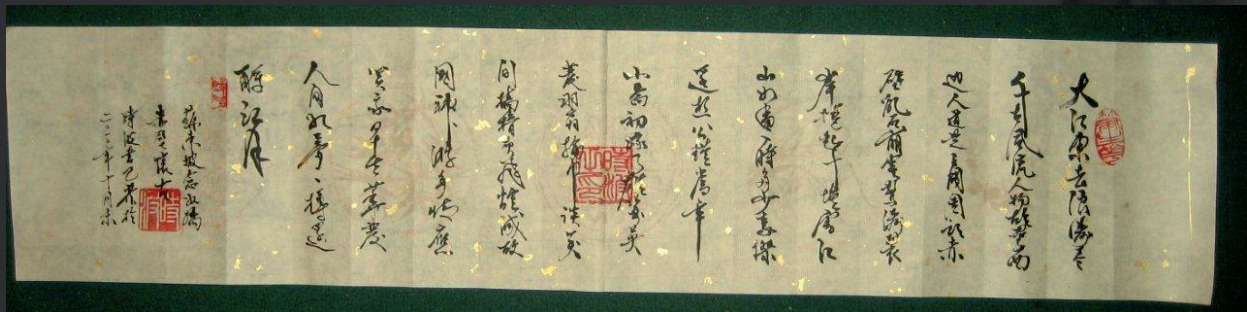 大江東去浪濤盡
千古風流人物故壘西
邊人道是三國周郎赤
壁亂石崩雲驚濤裂
岸捲起千堆雪江
山如畫一時多少豪傑
遙想公瑾當年
小喬初嫁了雄姿英
發羽扇綸巾談笑
間檣櫓灰飛煙滅故
國神游多情應
笑我早生華髮
人間如夢一樽還
酹江月
蘇東坡念奴嬌
赤壁懷古
時波書
年十月